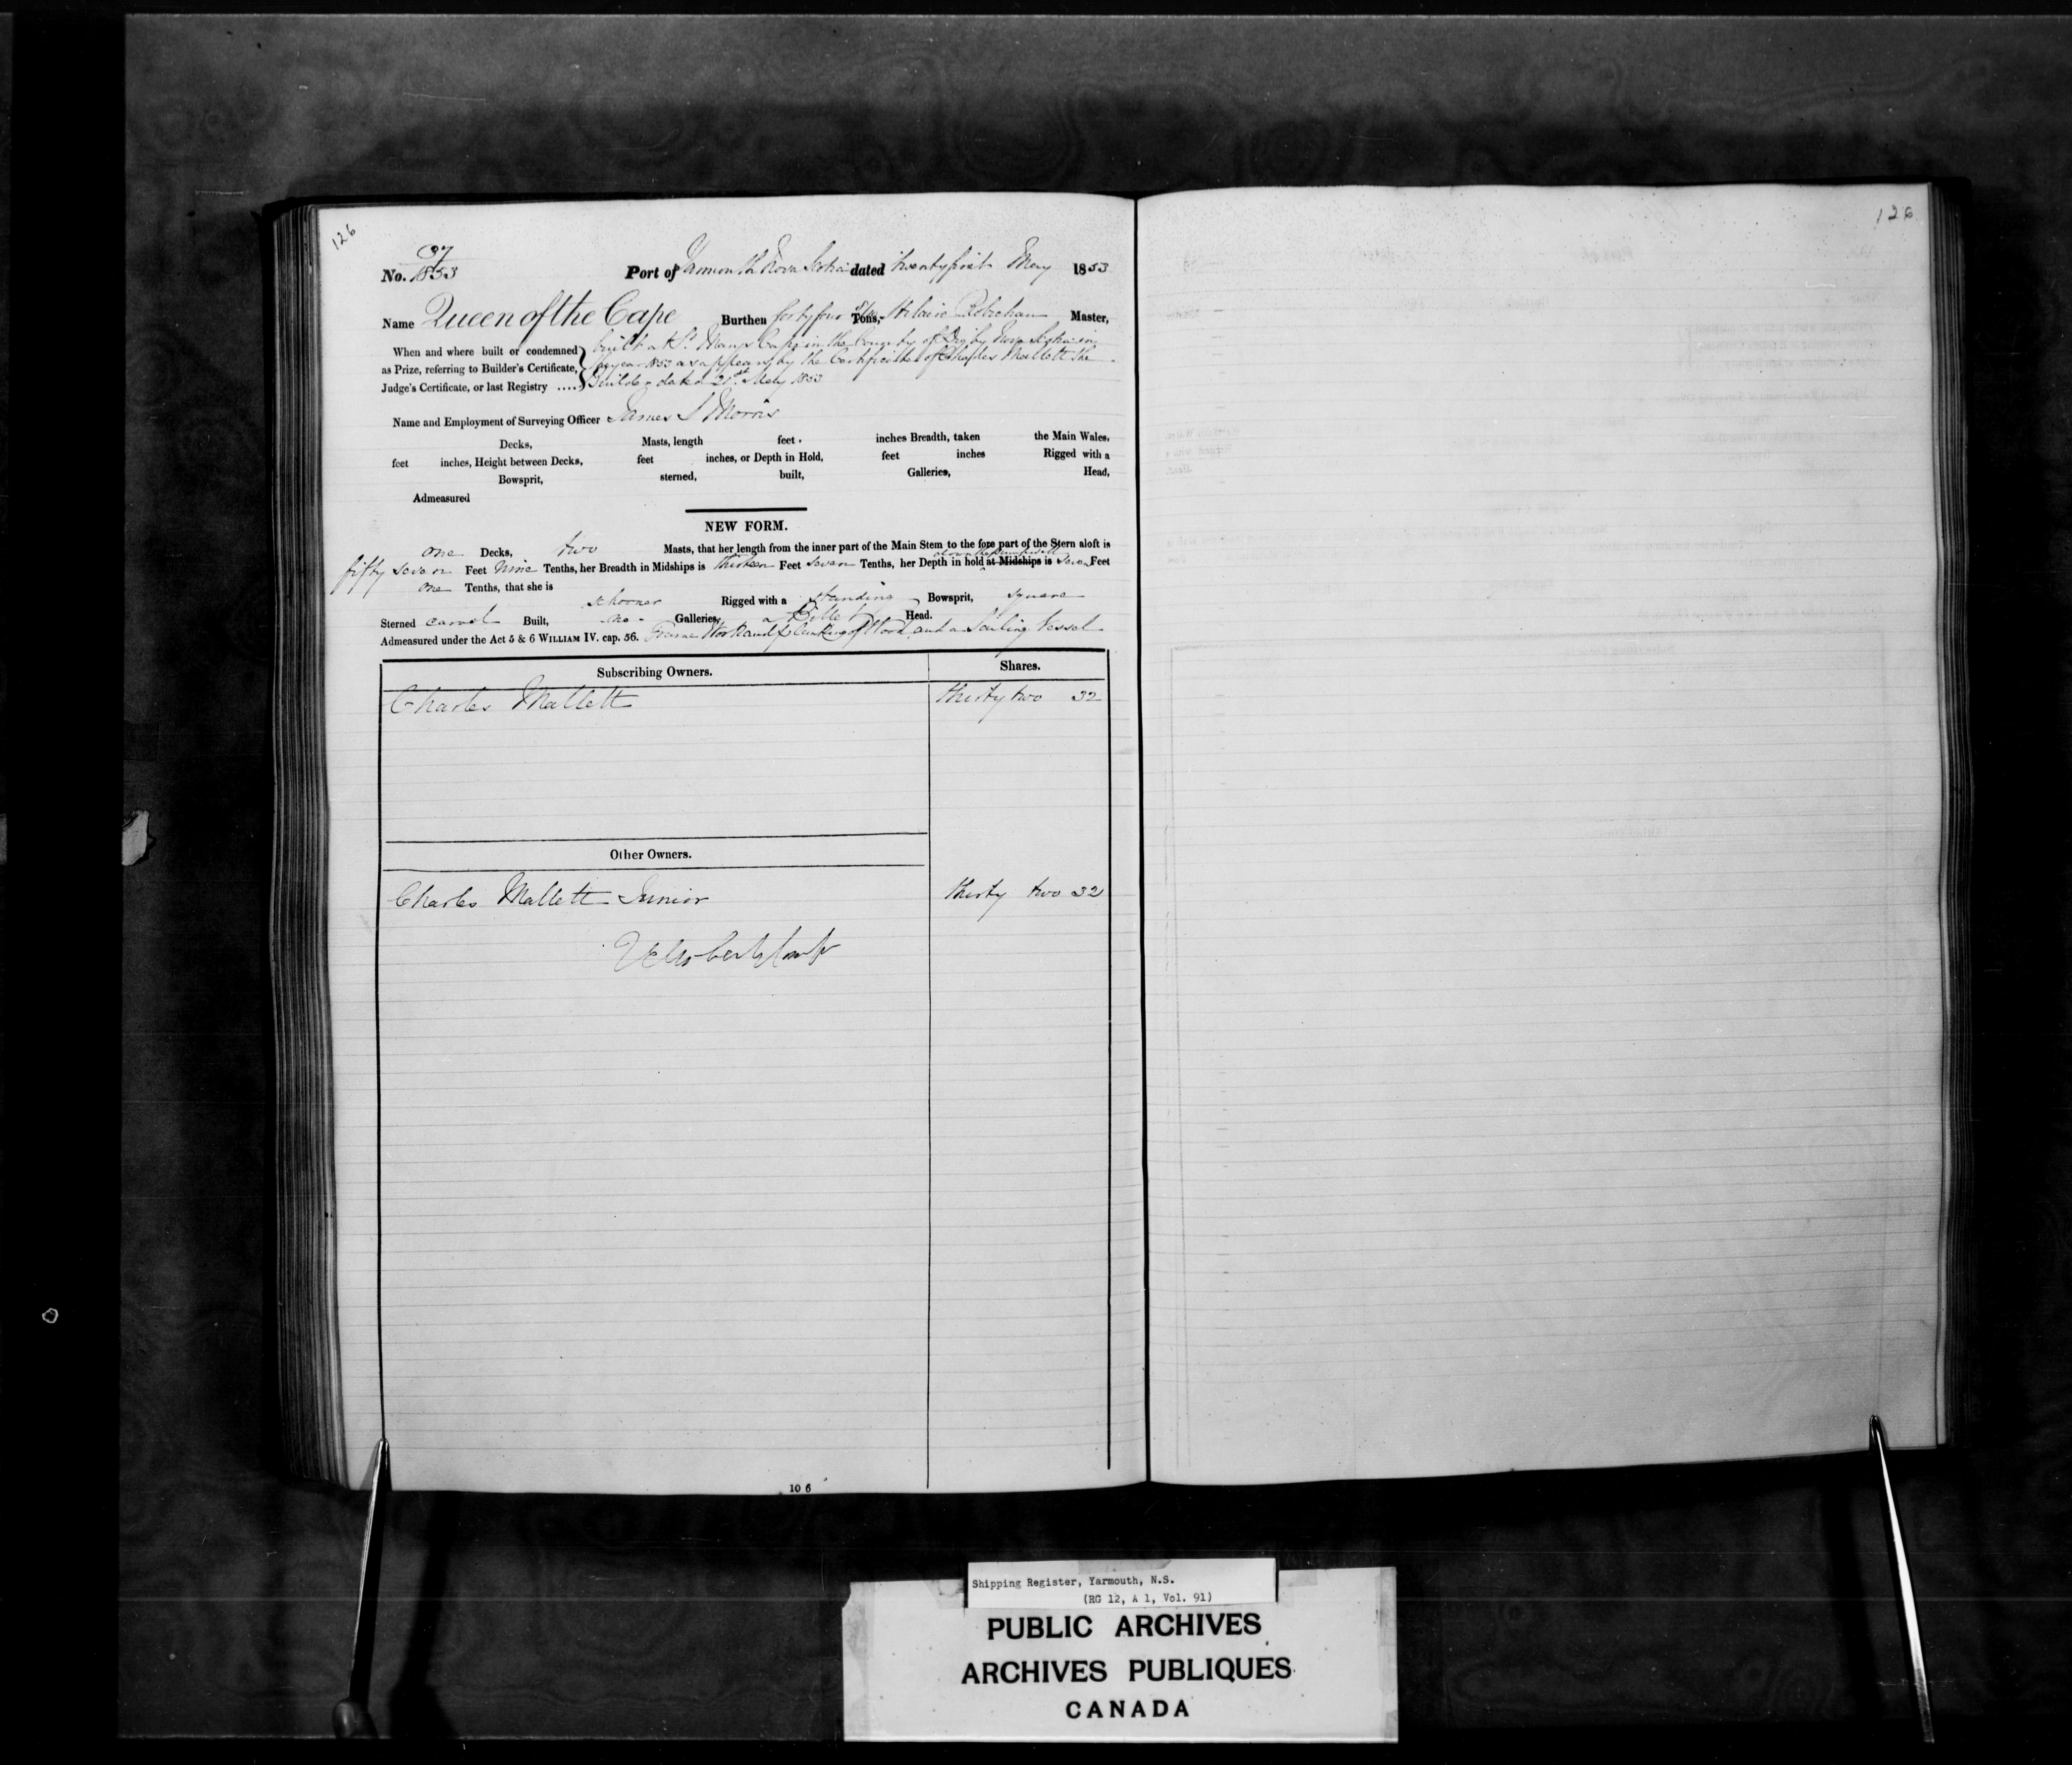 126
126
37
No. 1853 Port of Yarmouth Nova Scotia dated twenty first May 1853
Name Queen of the Cape Burthen forty four Tons, Hilaire Robichau Master,
When and where built or condemned as Prize, referring to Builder's Certificate, Judge's Certificate, or last Registry ....
built at St. Marys Cape in the County of Digby Nova Scotia in
the year 1853 as appears by the Certificate of Charles Mallett the
Builder dated 21st May 1853
Name and Employment of Surveying Officer James S Morris
Decks, Masts, length feet inches Breadth, taken the Main Wales,
feet inches, Height between Decks, feet inches, or Depth in Hold, feet inches Rigged with a
Bowsprit, sterned, built, Galleries, Head,
Admeasured
NEW FORM.
one Decks, two Masts, that her length from the inner part of the Main Stem to the fore part of the Stern aloft is
fifty seven Feet nine Tenths, her Breadth in Midships is thirteen Feet seven Tenths, her Depth in hold at Midships is seven Feet
one Tenths, that she is
schooner Rigged with a standing Bowsprit, square
Sterned carvel Built, no Galleries, a Billet Head.
Admeasured under the Act 5 & 6 WILLIAM IV. cap. 56. Frame Work and planking of Wood and a Sailing Vessel
Subscribing Owners. Shares.
Charles Mallett thirty two 32
Other Owners.
Charles Mallett Junior thirty two 32
10 6
Shipping Register, Yarmouth, N.S.
(RG 12, A 1, Vol. 91)
PUBLIC ARCHIVES
ARCHIVES PUBLIQUES
CANADA